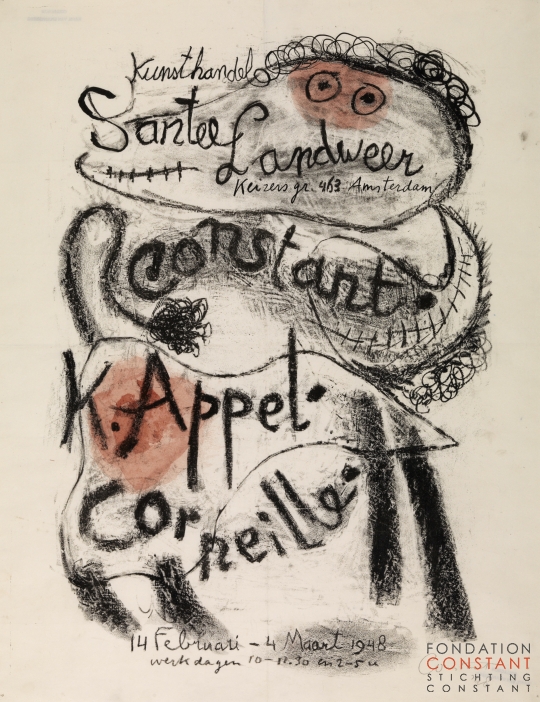 Kunsthandel
Santee
Landweer
Keizersgr. 463 Amsterdam
Constant.
K. Appel.
Corneille.
14 Februari - 4 Maart 1948
werkdagen 10-12.30 en 2-5 u
FONDATION
CONSTANT
STICHTING
CONSTANT